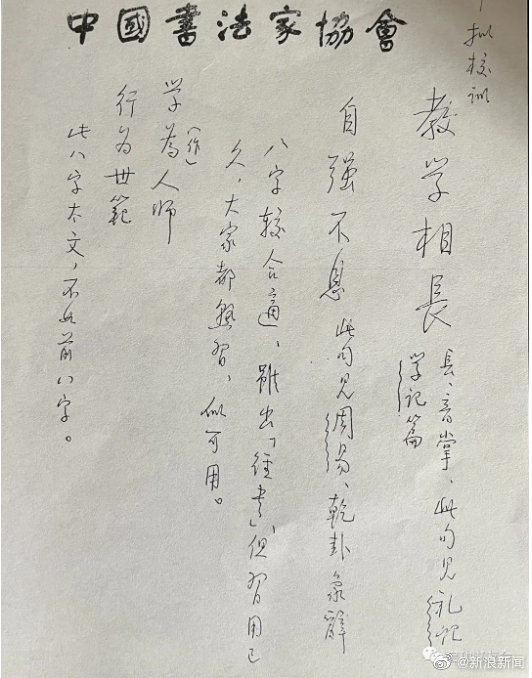 中國書法家協會
拟校训
教学相長 長、音掌、此句见礼记
学记篇
自强不息 此句见周易、乾卦象辞
八字较合適、雖出「经书」、但習用已
久，大家都熟習，似可用。
学為人师
（作）
行为世範
此八字太文，不如前八字。
@新浪新闻